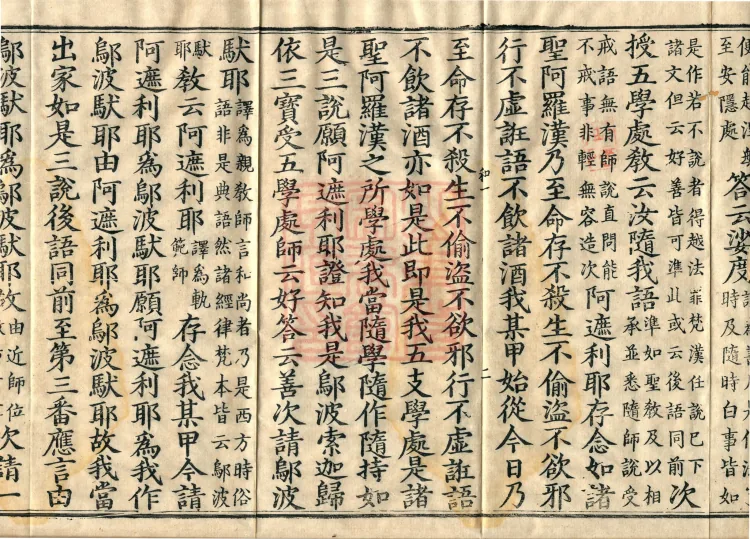 至安隱處
答云娑度
時及隨時白事皆如
是作若不說者得越法罪梵漢任說已下
諸文但云好善皆可準此或云後語同前
次
授五學處教云汝隨我語
準如聖教及以相
承並悉隨師說受
戒語無有師說直問能
不戒事非輕無容造次
阿遮利耶存念如諸
聖阿羅漢乃至命存不殺生不偷盜不欲邪
行不虛誑語不飲諸酒我某甲始從今日乃
和一 二
至命存不殺生不偷盜不欲邪行不虛誑語
不飲諸酒亦如是此即是我五支學處是諸
聖阿羅漢之所學處我當隨學隨作隨持如
是三說願阿遮利耶證知我是鄔波索迦歸
依三寶受五學處師云好答云善次請鄔波
馱耶
譯為親教師言和尚者乃是西方時俗
語非是典語然諸經律梵本皆云鄔波
馱
耶
教云阿遮利耶
譯為軌
範師
存念我某甲今請
阿遮利耶為鄔波馱耶願阿遮利耶為我作
鄔波馱耶由阿遮利耶為鄔波馱耶故我當
出家如是三說後語同前至第三番應言由
鄔波馱耶為鄔波馱耶故
由近師位
次請一